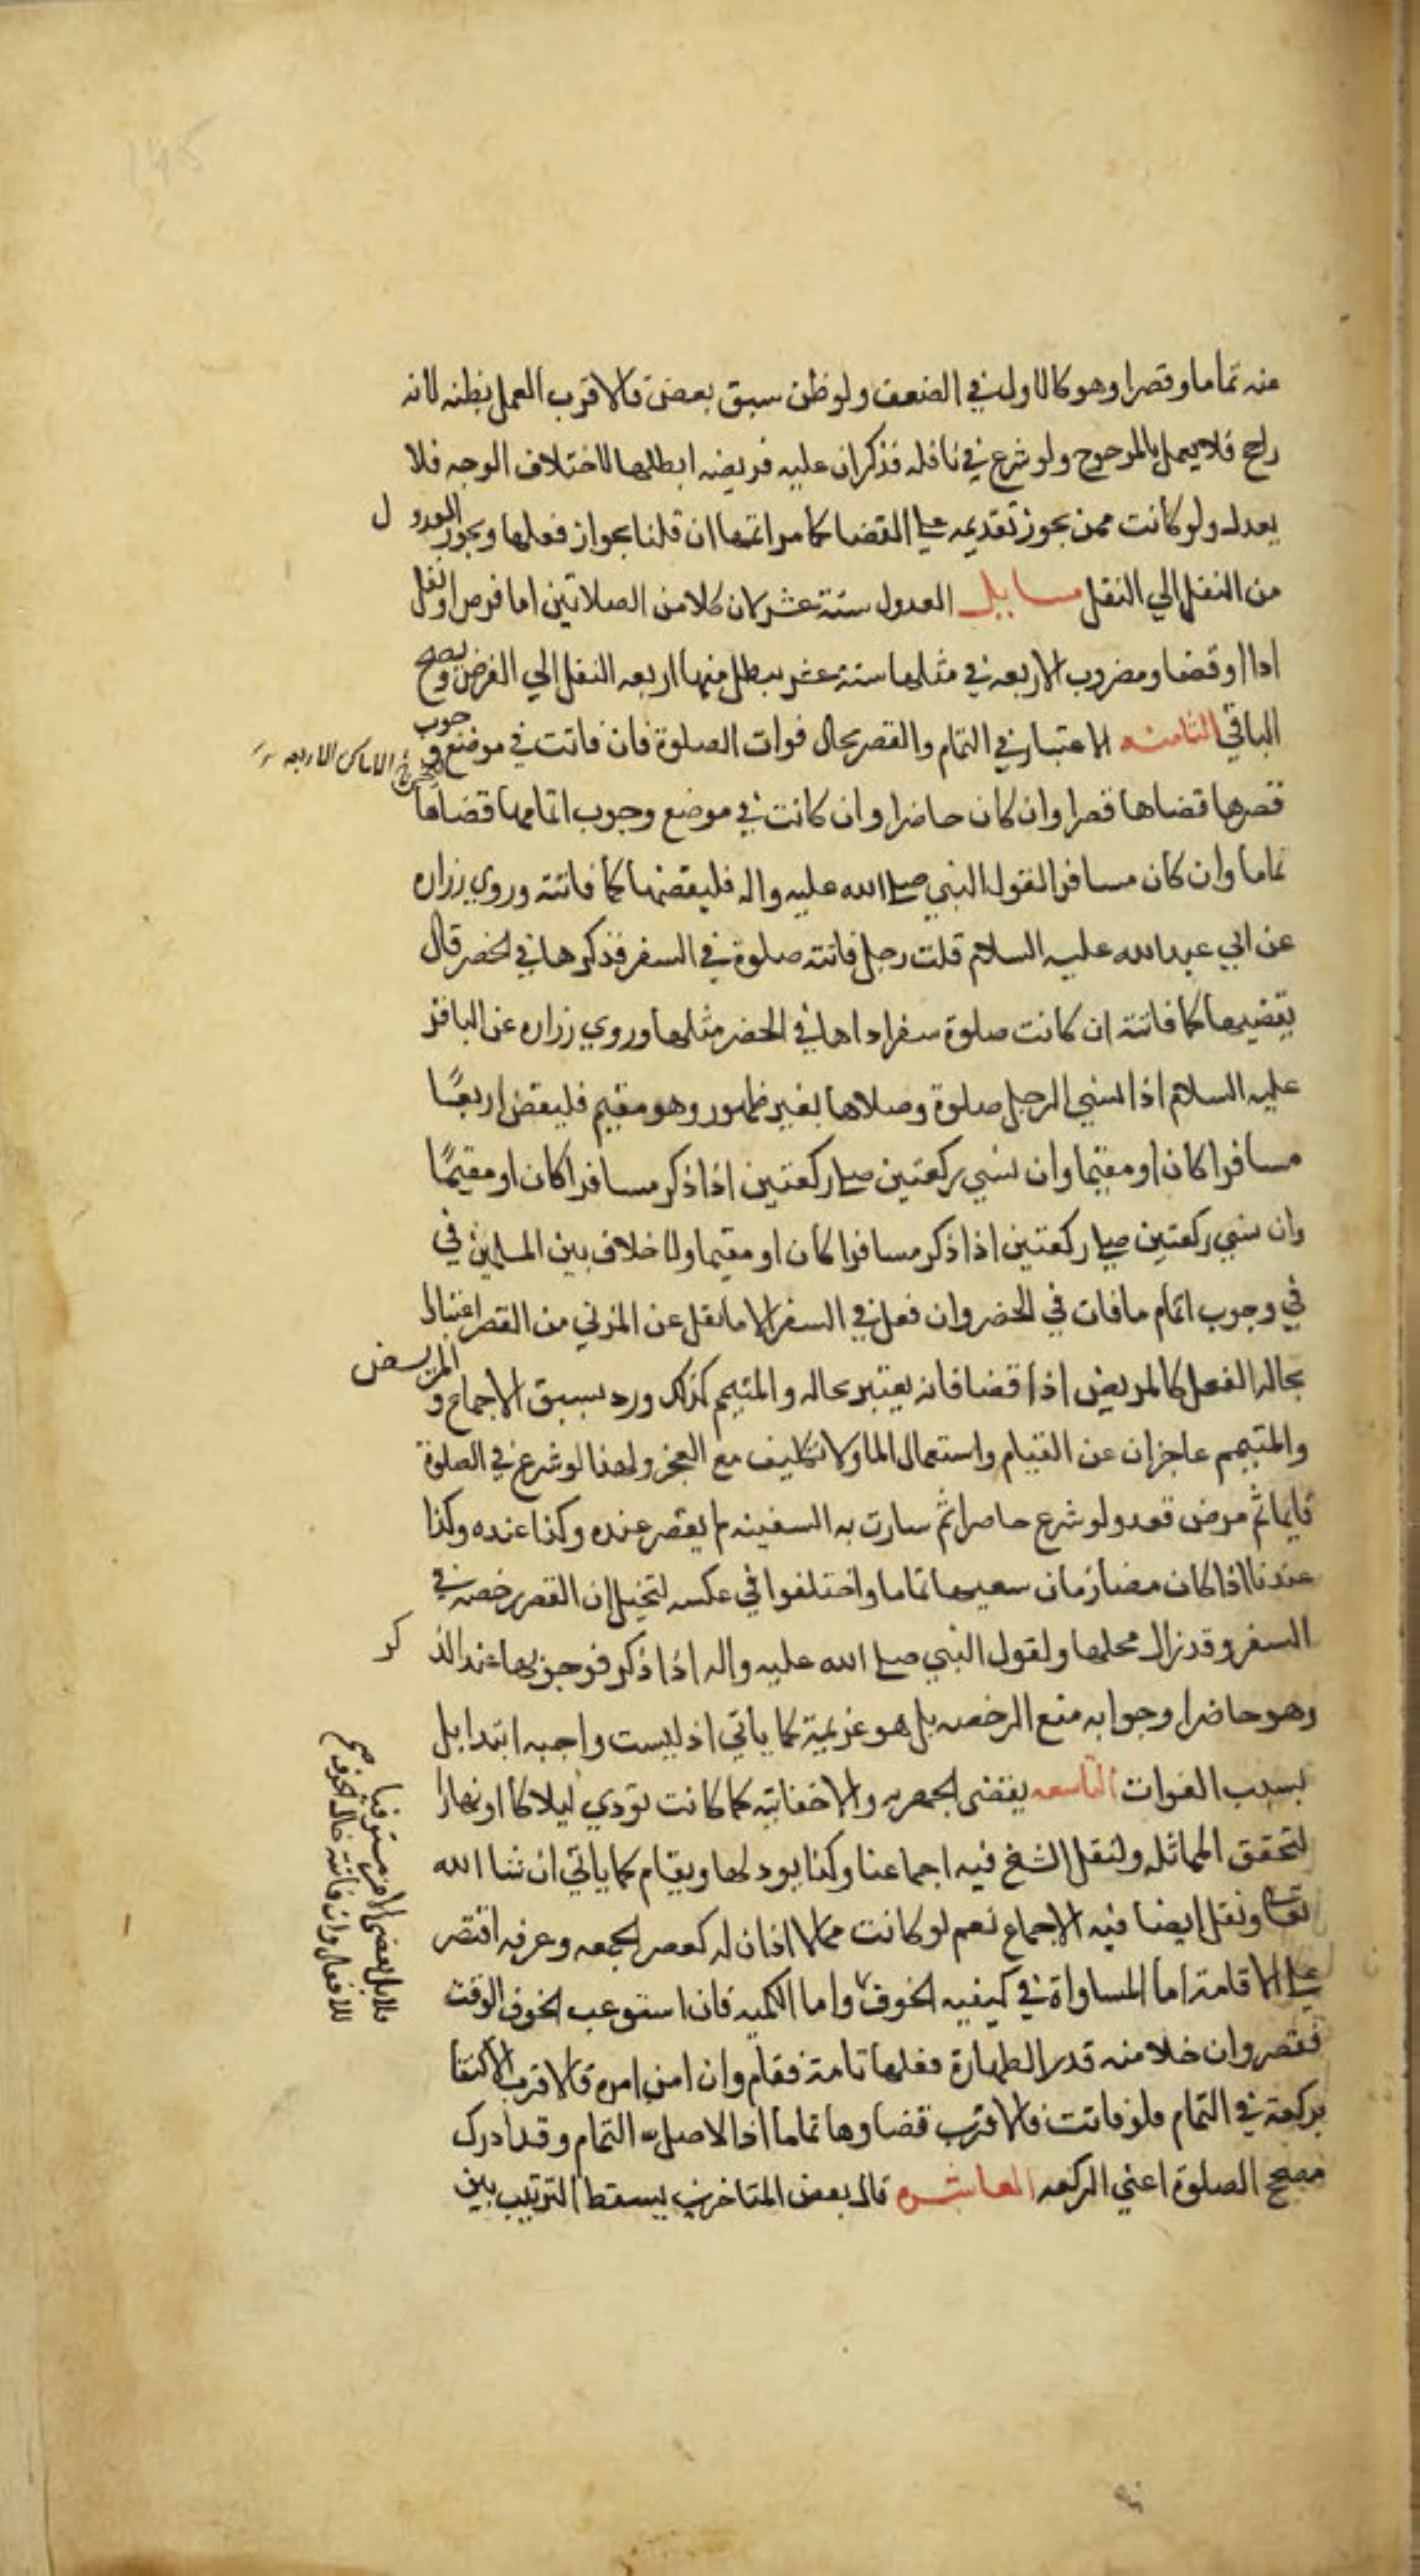 منه تماما وقصرا وهو كالاول في الضعف ولو ظن سبق بعض فالاقرب العمل بظنه لانه
راجح فلا يعمل بالمرجوح ولو شرع في نافله فذكر ان عليه فريضه ابطلها لاختلاف الوجه فلا
يعدل ولو كانت ممن يجوز تقديمه على القضا كما مر اتمها ان قلنا بجواز فعلها ويجوز العدول
من النفل الي النفل مسايل العدول ستة عشر لان كلا من الصلاتين اما فرض او نفل
ادا او قضا ومضروب الاربعه في مثلها ستة عشر يبطل منها اربعه النفل الي الفرض ويصح
الباقي الثامنه الاعتبار في التمام والقصر بحال فوات الصلوة فان فاتت في موضع وجوب
في الاماكن الاربعه
قصرها قضاها قصرا وان كان حاضرا وان كانت في موضع وجوب اتمامها قضاها
تماما وان كان مسافرا لقول النبي صلي الله عليه واله فليقضها كما فاتته وروي زراره
عن ابي عبد الله عليه السلام قلت رجل فاتته صلوة في السفر فذكرها في الحضر قال
يقضيها كما فاتته ان كانت صلوة سفر اداها في الحضر مثلها وروي زراره عن الباقر
عليه السلام اذا نسي الرجل صلوة وصلاها بغير طهور وهو مقيم فليقض اربعًا
مسافرا كان او مقيما وان نسي ركعتين صلي ركعتين اذا ذكر مسافرا كان او مقيمًا
وان نسي ركعتين صلي ركعتين اذا ذكر مسافرا كان او مقيما ولا خلاف بين المسلمين في
في وجوب اتمام ما فات في الحضر وان فعل في السفر الا ما نقل عن المزني من القصر اعتبارا
بحاله الفعل كالمريض اذا قضا فانه يعتبر بحاله والمتيمم كذلك ورد بسبق الاجماع و المريض
والمتيمم عاجزان عن القيام واستعمال الما ولا تكليف مع العجز ولهذا لو شرع في الصلوة
قايما ثم مرض قعد ولو شرع حاضرا ثم سارت به السفينه لم يقصر عنده وكذا عنده وكذا
عندنا اذا كان مضا زمان يسعها تماما واختلفوا في عكسه لتخيل ان القصر رخصه في
السفر وقد زال محلها ولقول النبي صلي الله عليه واله اذا ذكر فوجوبها عند الذكر
وهو حاضرا وجوابه منع الرخصه بل هو عزيمة كما ياتي اذ ليست واجبه ابتدا بل
بسبب الفوات التاسعه يقضى الجهريه والاخفاتيه كما كانت تودي ليلا كا او نهارا
لتحقق المماثله ولنقل الشيخ فيه اجماعنا وكذا يوذن لها ويقام كما ياتي ان شا الله
تعالى ونقل ايضا فيه الاجماع نعم لو كانت مما لا اذان له كعصر الجمعه وعرفه اقتصر
على الاقامة اما المساواة في كيفيه الخوف فلا بل يقضى الامن مستوفيا
للافعال وان فاتته حال الخوف صح
واما الكميه فان استوعب الخوف الوقت
فقصر وان خلا منه قدر الطهارة وفعلها تامة فتمام وان امن اخره فالاقرب الاكتفا
بركعة في التمام فلو فاتت فالاقرب قضاوها تماما اذ الاصل التمام وقد ادرك
مصحح الصلوة اعني الركعه العاشره قال بعض المتاخرين يسقط الترتيب بين